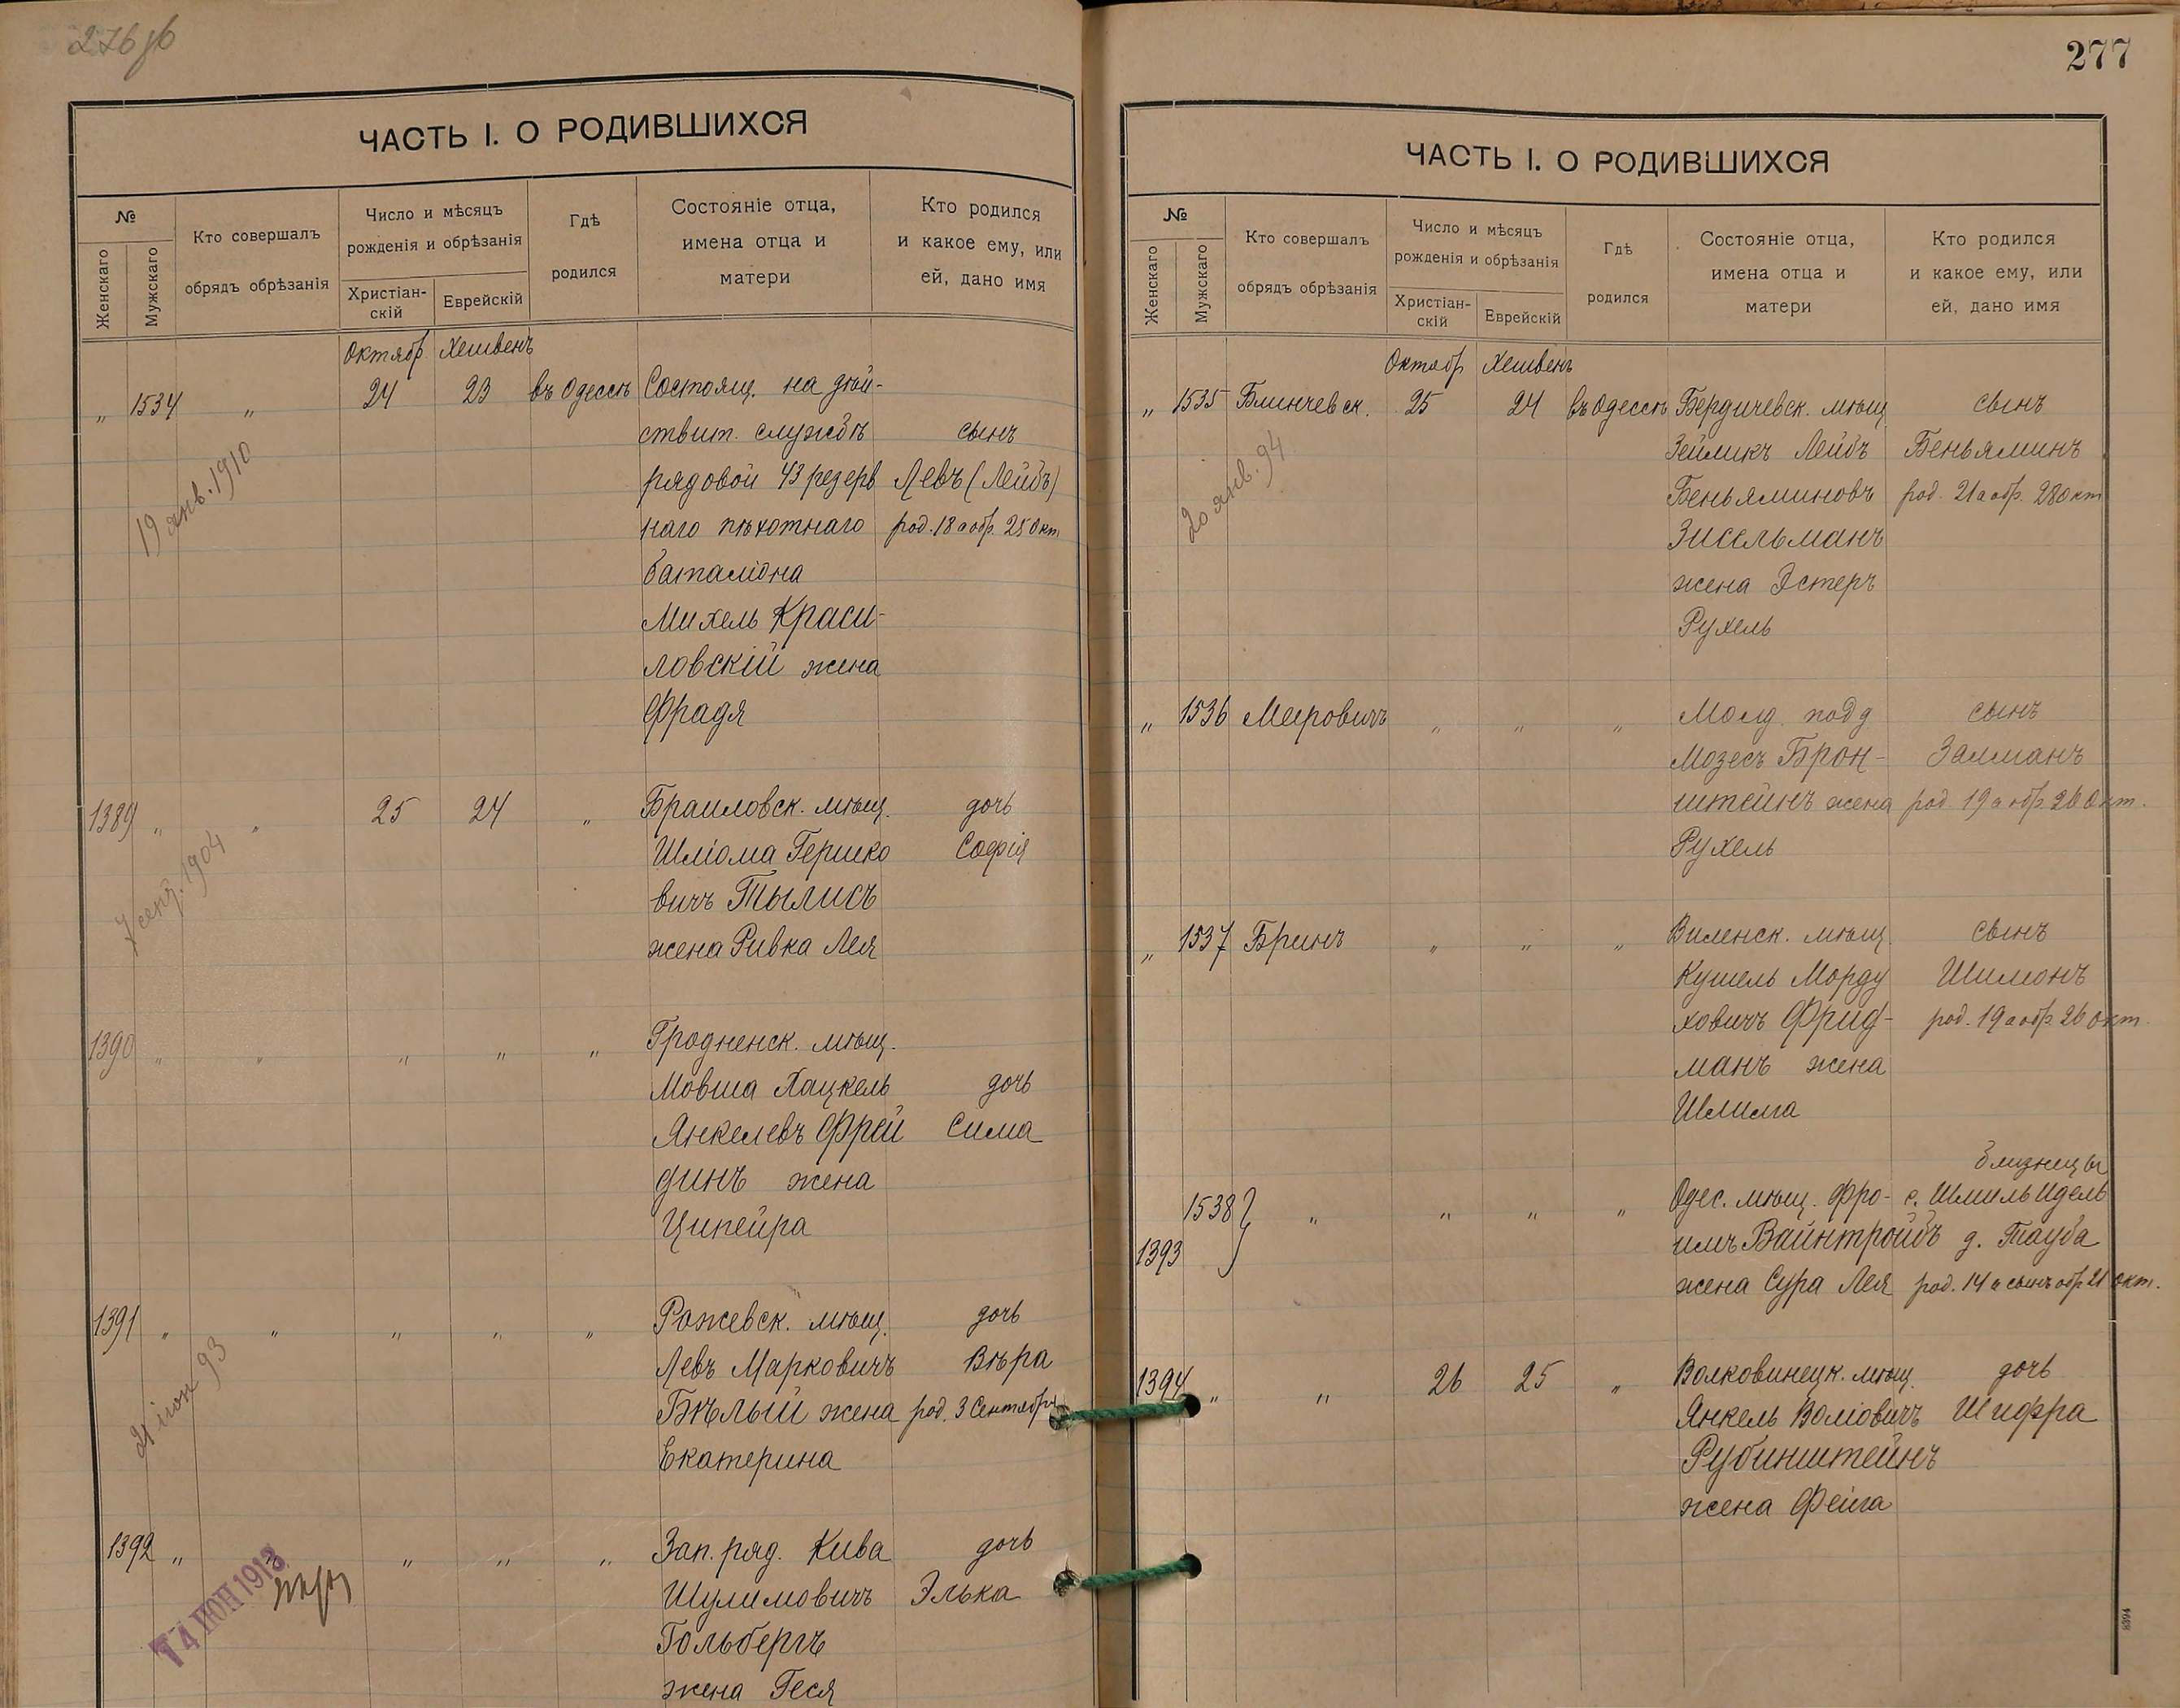 276 об
ЧАСТЬ I. О РОДИВШИХСЯ
№
Женскаго
Мужскаго
Кто совершалъ
обрядъ обрѣзанія
Число и мѣсяцъ
рожденія и обрѣзанія
Христіан-
скій
Еврейскій
Гдѣ
родился
Состояніе отца,
имена отца и
матери
Кто родился
и какое ему, или
ей, дано имя
Октябр. Хешвенъ
„ 1534 „ 24 23 въ Одессѣ Состоящ. на дѣй-
ствит. службѣ сынъ
рядовой 43 резерв Левъ (Лейбъ)
наго пѣхотнаго род. 18 а обр. 25 Окт
баталіона
Михель Краси-
ловскій жена
Фрадя
19 янв. 1910
1389 „ „ 25 24 „ Браиловск. мѣщ. дочь
Шліома Гершко Софія
вичъ Тылисъ
жена Ривка Лея
7 сент. 1904
1390 „ „ „ „ „ Гродненск. мѣщ.
Мовша Хацкель дочь
Янкелевъ Фрей Сима
динъ жена
Ципейра
1391 „ „ „ „ „ Рожевск. мѣщ. дочь
Левъ Марковичъ Вѣра
Бѣлый жена род. 3 Сентября
Екатерина
21 іюн 93
1392 „ „ „ „ Зап. ряд. Кива дочь
Шулимовичъ Элька
Гольбергъ
жена Геся
277
ЧАСТЬ I. О РОДИВШИХСЯ
№
Женскаго
Мужскаго
Кто совершалъ
обрядъ обрѣзанія
Число и мѣсяцъ
рожденія и обрѣзанія
Христіан-
скій
Еврейскій
Гдѣ
родился
Состояніе отца,
имена отца и
матери
Кто родился
и какое ему, или
ей, дано имя
Октябр Хешвенъ
„ 1535 Блинчевск. 25 24 въ Одессѣ Бердичевск. мѣщ сынъ
Зейликъ Лейбъ Беньяминъ
Беньяминовъ род. 21 а обр. 28 окт
Зисельманъ
жена Эстеръ
Рухель
20 янв. 94
„ 1536 Меировичъ „ „ „ Молд. подд сынъ
Мозесъ Брон- Залманъ
штейнъ жена род 19 а обр 26 Окт.
Рухель
„ 1537 Бринъ „ „ „ Виленск. мѣщ. сынъ
Кушель Морду Шимонъ
ховичъ Фрид- род. 19 а обр 26 окт.
манъ жена
Шлима
близнецы
1538 „ „ „ „ Одес. мѣщ. Фро- с. Шмиль Идель
1393 имъ Вайнтройбъ д. Тауба
жена Сура Лея род. 14 а сынъ обр 21 окт.
1394 „ „ 26 25 „ Волковинецк. мѣщ. дочь
Янкель Воліовичъ Шифра
Рубинштейнъ
жена Фейга